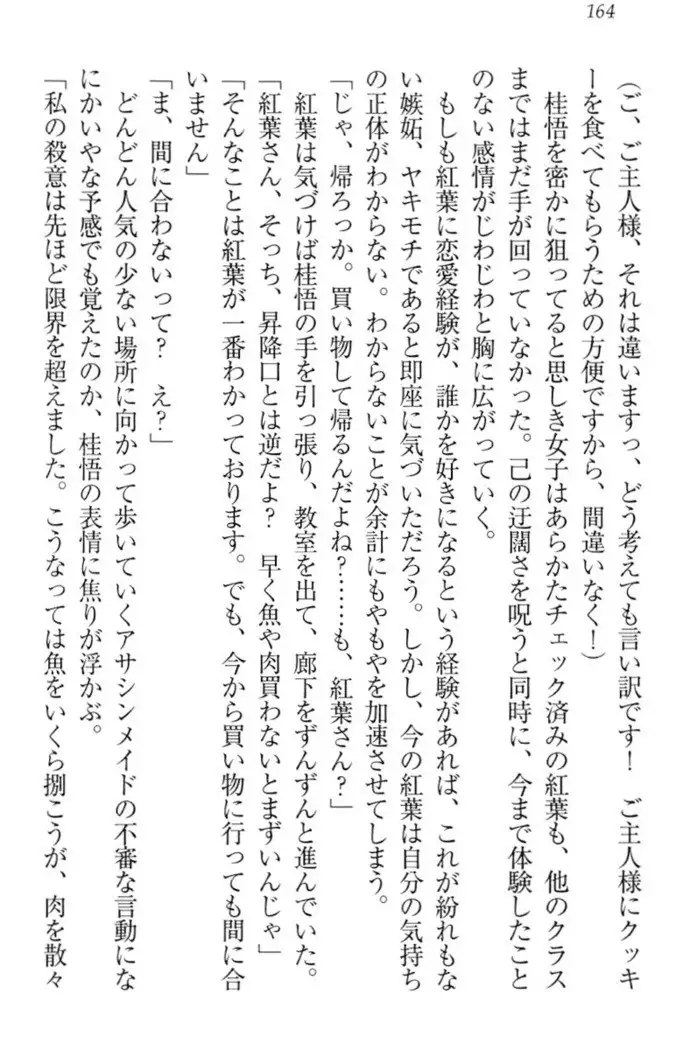 164
（ご、ご主人様、それは違いますっ、どう考えても言い訳です！　ご主人様にクッキ
ーを食べてもらうための方便ですから、間違いなく！）
　桂悟を密かに狙ってると思しき女子はあらかたチェック済みの紅葉も、他のクラス
まではまだ手が回っていなかった。己の迂闊さを呪うと同時に、今まで体験したこと
のない感情がじわじわと胸に広がっていく。
　もしも紅葉に恋愛経験が、誰かを好きになるという経験があれば、これが紛れもな
い嫉妬、ヤキモチであると即座に気づいただろう。しかし、今の紅葉は自分の気持ち
の正体がわからない。わからないことが余計にもやもやを加速させてしまう。
「じゃ、帰ろっか。買い物して帰るんだよね？……も、紅葉さん？」
　紅葉は気づけば桂悟の手を引っ張り、教室を出て、廊下をずんずんと進んでいた。
「紅葉さん、そっち、昇降口とは逆だよ？　早く魚や肉買わないとまずいんじゃ」
「そんなことは紅葉が一番わかっております。でも、今から買い物に行っても間に合
いません」
「ま、間に合わないって？　え？」
　どんどん人気の少ない場所に向かって歩いていくアサシンメイドの不審な言動にな
にかいやな予感でも覚えたのか、桂悟の表情に焦りが浮かぶ。
「私の殺意は先ほど限界を超えました。こうなっては魚をいくら捌こうが、肉を散々